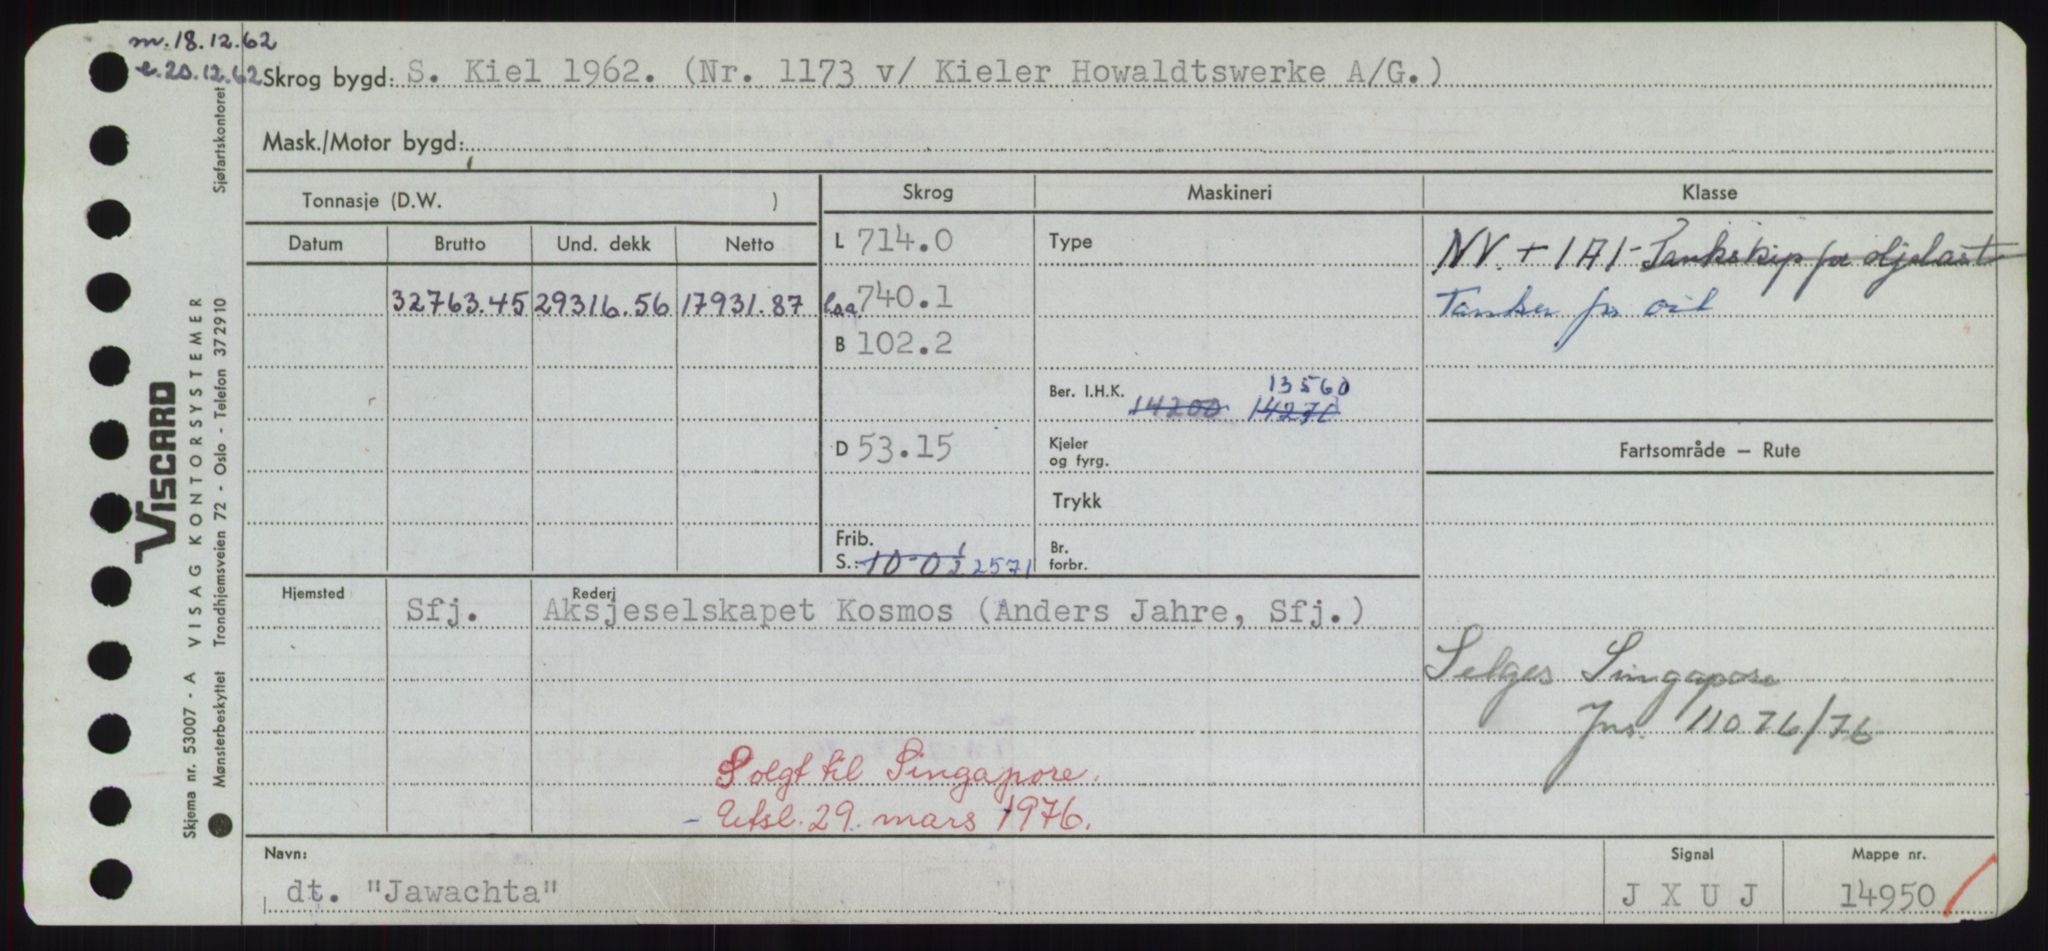 m. 18.12.62
e. 20.12.62
Skrog bygd: S. Kiel 1962. (Nr. 1173 v/ Kieler Howaldtswerke A/G.)
Mask./Motor bygd:
Tonnasje (D.W. )
Skrog
Maskineri
Klasse
Datum
Brutto
Und. dekk
Netto
L 714.0
Type
NV. + 1A1 - Tankskip for oljelast
32763.45 29316.56 17931.87
Loa. 740.1
Tanker for oil
B 102.2
Ber. I.H.K. 14200 14270 13560
D 53.15
Kjeler
og fyrg.
Fartsområde – Rute
Trykk
Frib.
S.: 10-0 2571
Br.
forbr.
Hjemsted
Rederi
Sfj. Aksjeselskapet Kosmos (Anders Jahre, Sfj.)
Selges Singapore
Jnr. 11076/76
Solgt til Singapore.
- Utsl. 29. mars 1976.
Navn:
dt. "Jawachta"
Signal
J X U J
Mappe nr.
14950
Sjøfartskontoret
VISCARD
VISAG KONTORSYSTEMER
Skjema nr. 53007 - A
Mønsterbeskyttet Trondhjemsveien 72 - Oslo - Telefon 372910